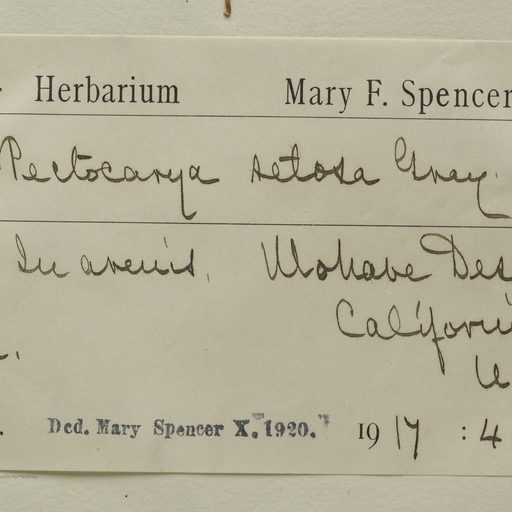 Herbarium Mary F. Spencer
Pectocarya setosa Gray.
In arenis. Mohave Des
Californi
U
Ded. Mary Spencer X. 1920. 1917 : 4